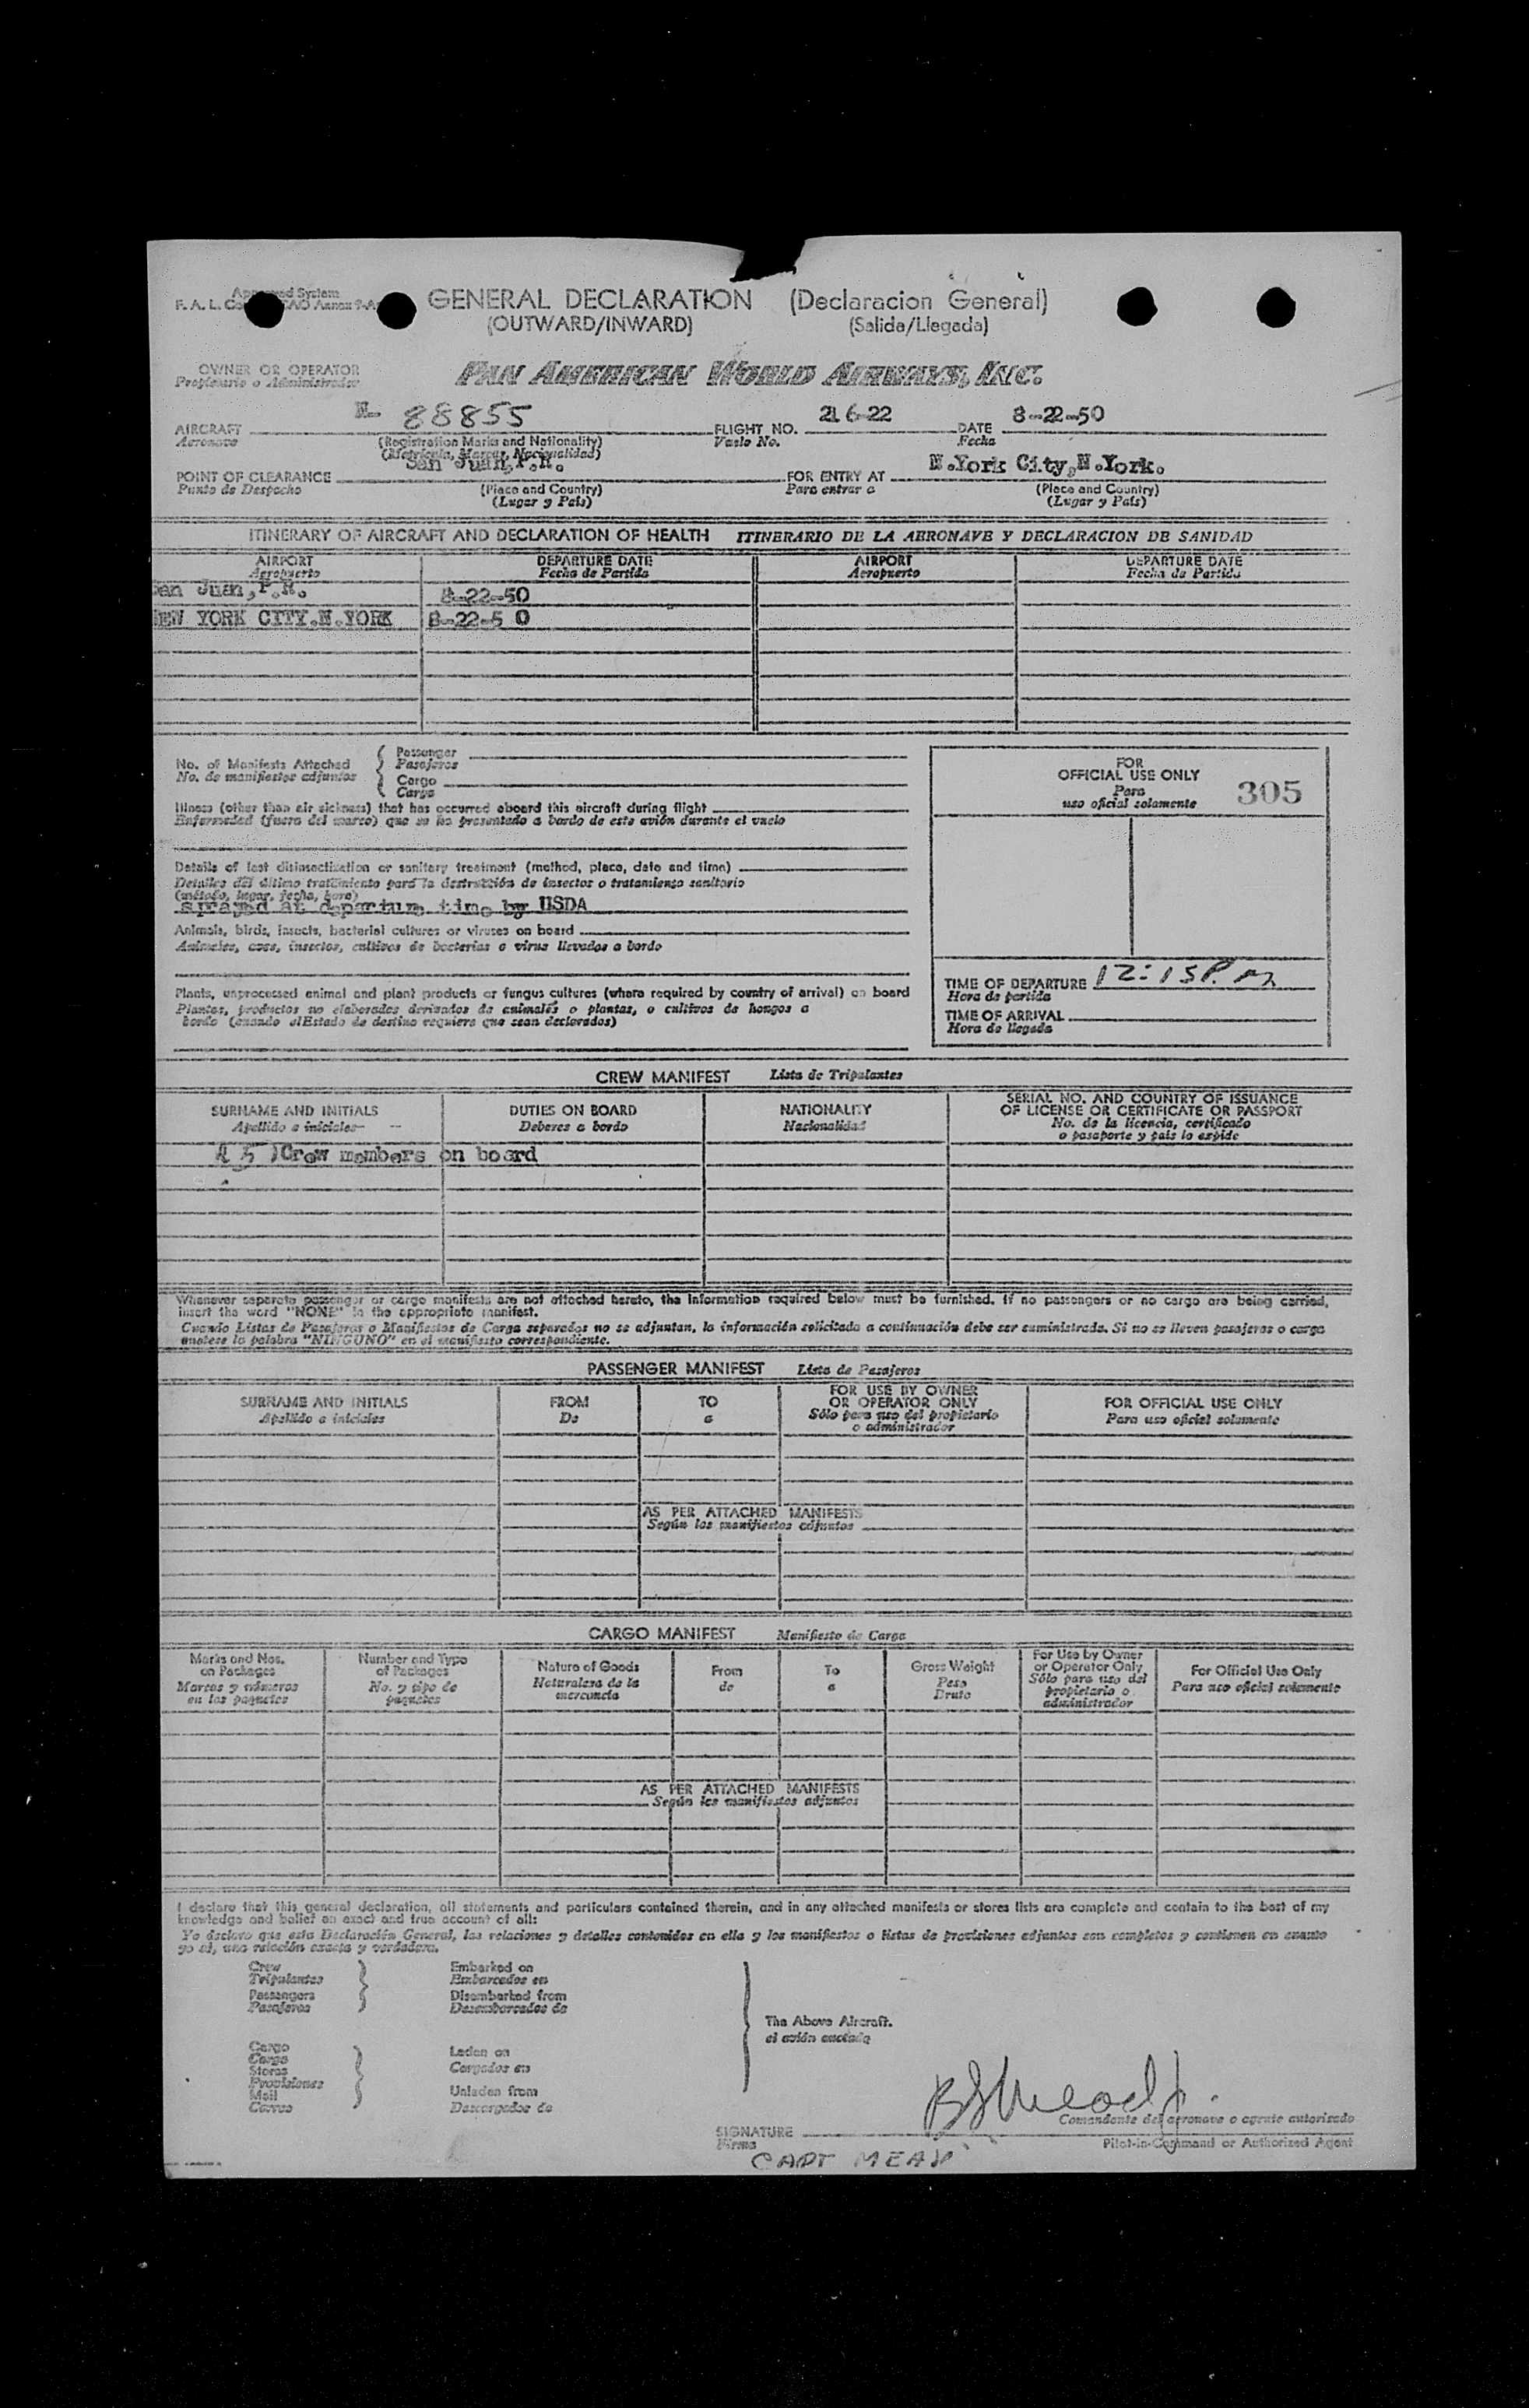 GENERAL DECLARATION (Declaracion General)
(OUTWARD/INWARD) (Salida/Llegada)
OWNER OR OPERATOR
Propietario o Administrador
PAN AMERICAN WORLD AIRWAYS, INC.
N- 88855 216-22 8-22-50
AIRCRAFT FLIGHT NO. DATE
Aeronave (Registration Marks and Nationality) Vuelo No. Fecha
(Matricula, Marcas, Nacionalidad)
San Juan, P.R. N.York City, N.York.
POINT OF CLEARANCE FOR ENTRY AT
Punto de Despacho (Place and Country) Para entrar a (Place and Country)
(Lugar y País) (Lugar y País)
ITINERARY OF AIRCRAFT AND DECLARATION OF HEALTH ITINERARIO DE LA AERONAVE Y DECLARACION DE SANIDAD
AIRPORT DEPARTURE DATE AIRPORT DEPARTURE DATE
Aeropuerto Fecha de Partida Aeropuerto Fecha de Partida
San Juan, P.R. 8-22-50
NEW YORK CITY.N.YORK 8-22-5 0
No. of Manifests Attached
No. de manifiestos adjuntos
Passenger
Pasajeros
Cargo
Carga
FOR
OFFICIAL USE ONLY
Para
uso oficial solamente
305
Illness (other than air sickness) that has occurred aboard this aircraft during flight
Enfermedad (fuera del mareo) que se ha presentado a bordo de este avión durante el vuelo
Details of last disinsectization or sanitary treatment (method, place, date and time)
Detalles del último tratamiento para la destrucción de insectos o tratamiento sanitario
(método, lugar, fecha, hora)
sprayed at departure time by USDA
Animals, birds, insects, bacterial cultures or viruses on board
Animales, aves, insectos, cultivos de bacterias o virus llevados a bordo
Plants, unprocessed animal and plant products or fungus cultures (where required by country of arrival) on board
Plantas, productos no elaborados derivados de animales o plantas, o cultivos de hongos a
bordo (cuando el Estado de destino requiera que sean declarados)
TIME OF DEPARTURE 12:15P.m
Hora de partida
TIME OF ARRIVAL
Hora de llegada
CREW MANIFEST Lista de Tripulantes
SURNAME AND INITIALS DUTIES ON BOARD NATIONALITY SERIAL NO. AND COUNTRY OF ISSUANCE
OF LICENSE OR CERTIFICATE OR PASSPORT
Apellido e iniciales Deberes a bordo Nacionalidad No. de la licencia, certificado
o pasaporte y país lo expide
5 )Crew members on board
Whenever separate passenger or cargo manifests are not attached hereto, the information required below must be furnished. If no passengers or no cargo are being carried,
insert the word "NONE" in the appropriate manifest.
Cuando Listas de Pasajeros o Manifiestos de Carga separados no se adjuntan, la información solicitada a continuación debe ser suministrada. Si no se lleven pasajeros o carga
anótese la palabra "NINGUNO" en el manifiesto correspondiente.
PASSENGER MANIFEST Lista de Pasajeros
SURNAME AND INITIALS FROM TO FOR USE BY OWNER
OR OPERATOR ONLY FOR OFFICIAL USE ONLY
Apellido e iniciales De a Sólo para uso del propietario
o administrador Para uso oficial solamente
AS PER ATTACHED MANIFESTS
Según los manifiestos adjuntos
CARGO MANIFEST Manifiesto de Carga
Marks and Nos.
on Packages
Marcas y números
en los paquetes
Number and Type
of Packages
No. y tipo de
paquetes
Nature of Goods
Naturaleza de la
mercancía
From
de
To
a
Gross Weight
Peso
Bruto
For Use by Owner
or Operator Only
Sólo para uso del
propietario o
administrador
For Official Use Only
Para uso oficial solamente
AS PER ATTACHED MANIFESTS
Según los manifiestos adjuntos
I declare that this general declaration, all statements and particulars contained therein, and in any attached manifests or stores lists are complete and contain to the best of my
knowledge and belief an exact and true account of all:
Yo declaro que esta Declaración General, las relaciones y detalles contenidos en ella y los manifiestos o listas de provisiones adjuntos son completos y contienen en cuanto
yo sé, una relación exacta y verdadera.
Crew
Tripulantes
Passengers
Pasajeros
Embarked on
Embarcados en
Disembarked from
Desembarcados de
The Above Aircraft.
el avión anotado
Cargo
Carga
Stores
Provisiones
Mail
Correo
Laden on
Cargados en
Unladen from
Descargados de
Comandante del aeronave o agente autorizado
SIGNATURE
Firma
Pilot-in-Command or Authorized Agent
CAPT MEAD